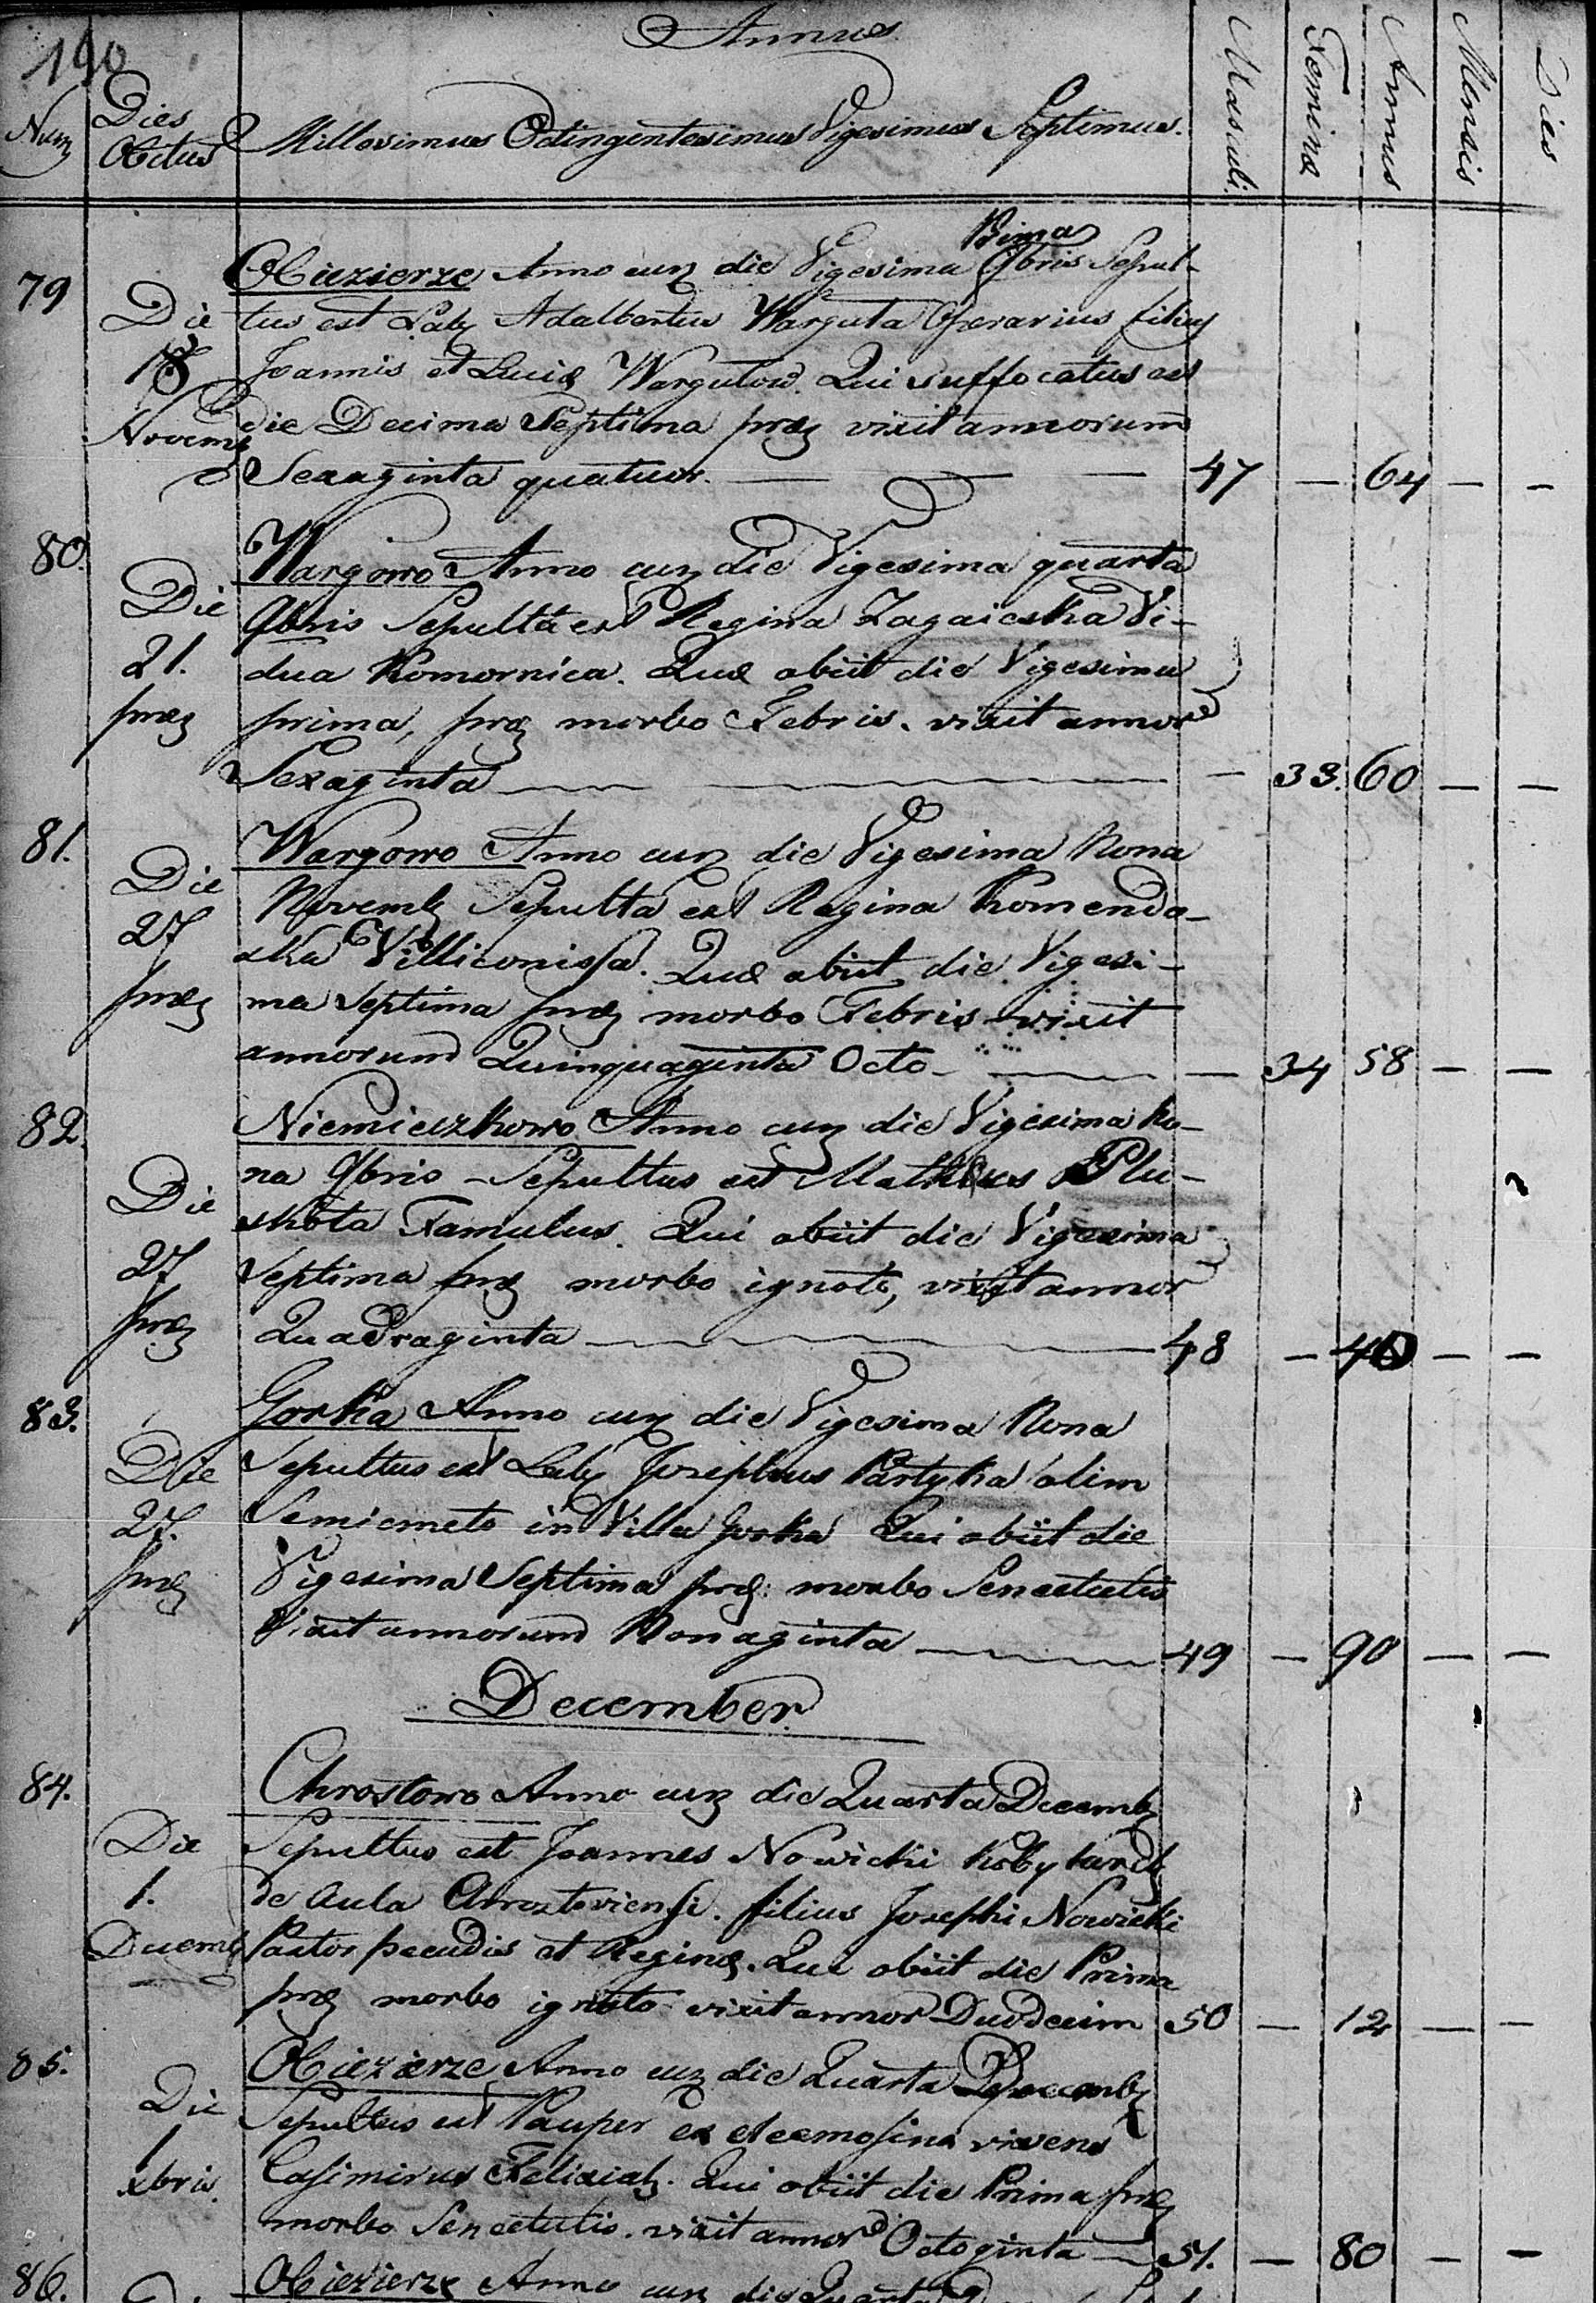 190
Annus
Num
Dies Obitus
Millesimus Octingentesimus Vigesimus Septimus.
Masculi.
Feminæ
Annus
Mensis
Dies
79
Die 18 Novemb
Bima
Obiezierze Anno eun die Vigesima 9bris Sepul-
tus est Lab AdalbertusВарguta Operarius filius
Joannis et Luciæ Wargutow. Qui suffocatus est
die Decima Septima præs vixit annorum
Sexaginta quatuor. 47 — 64 — —
80.
Die 21. præs
Wargowo Anno eun die Vigesima quarta
9bris Sepulta est Regina Zagaieska Vi-
dua Komornica. Quæ obiit die Vigesima
prima, præs morbo Febris. vixit annor
Sexaginta — 33. 60 — —
81.
Die 27 præs
Wargowo Anno eun die Vigesima Nona
Novemb Sepulta est Regina Komendo-
ska Villiconissa. Quæ obiit die Vigesi-
ma Septima præs morbo Febris vixit
annorum Quinquaginta Octo — 34 58 — —
82.
Die 27 præs
Niemieczkowo Anno eun die Vigesima No-
na 9bris Sepultus est Matheus Plu-
skota Famulus. Qui obiit die Vigesima
Septima præs morbo ignoto, vixit annor
Quadraginta 48 — 40 — —
83.
Die 27. præs
Gorka Anno eun die Vigesima Nona
Sepultus est Lab Josephus Partyka olim
Semicmeto in Villa Gorka Qui obiit die
Vigesima Septima præs: morbo Senectutis
Vixit annorum Nonaginta 49 — 90 — —
December.
84.
Die 1. Decemb
Chrostowo Anno eun die Quarta Decemb
Sepultus est Joannes Nowicki
de Aula Chrostoviensi. filius Josephi Nowicki
Pastor pecudis et Reginæ. Qui obiit die Prima
præs morbo ignoto vixit annor Duodecim 50 — 12 — —
85.
Die 1 xbris.
Obiezierze Anno eun die Quarta Decemb
Sepultus est Pauper ex eleemosina vivens
Casimirus Qui obiit die Prima præs
morbo Senectutis. vixit annor Octoginta 51. — 80 — —
86.
Obiezierze Anno eun die Quarta